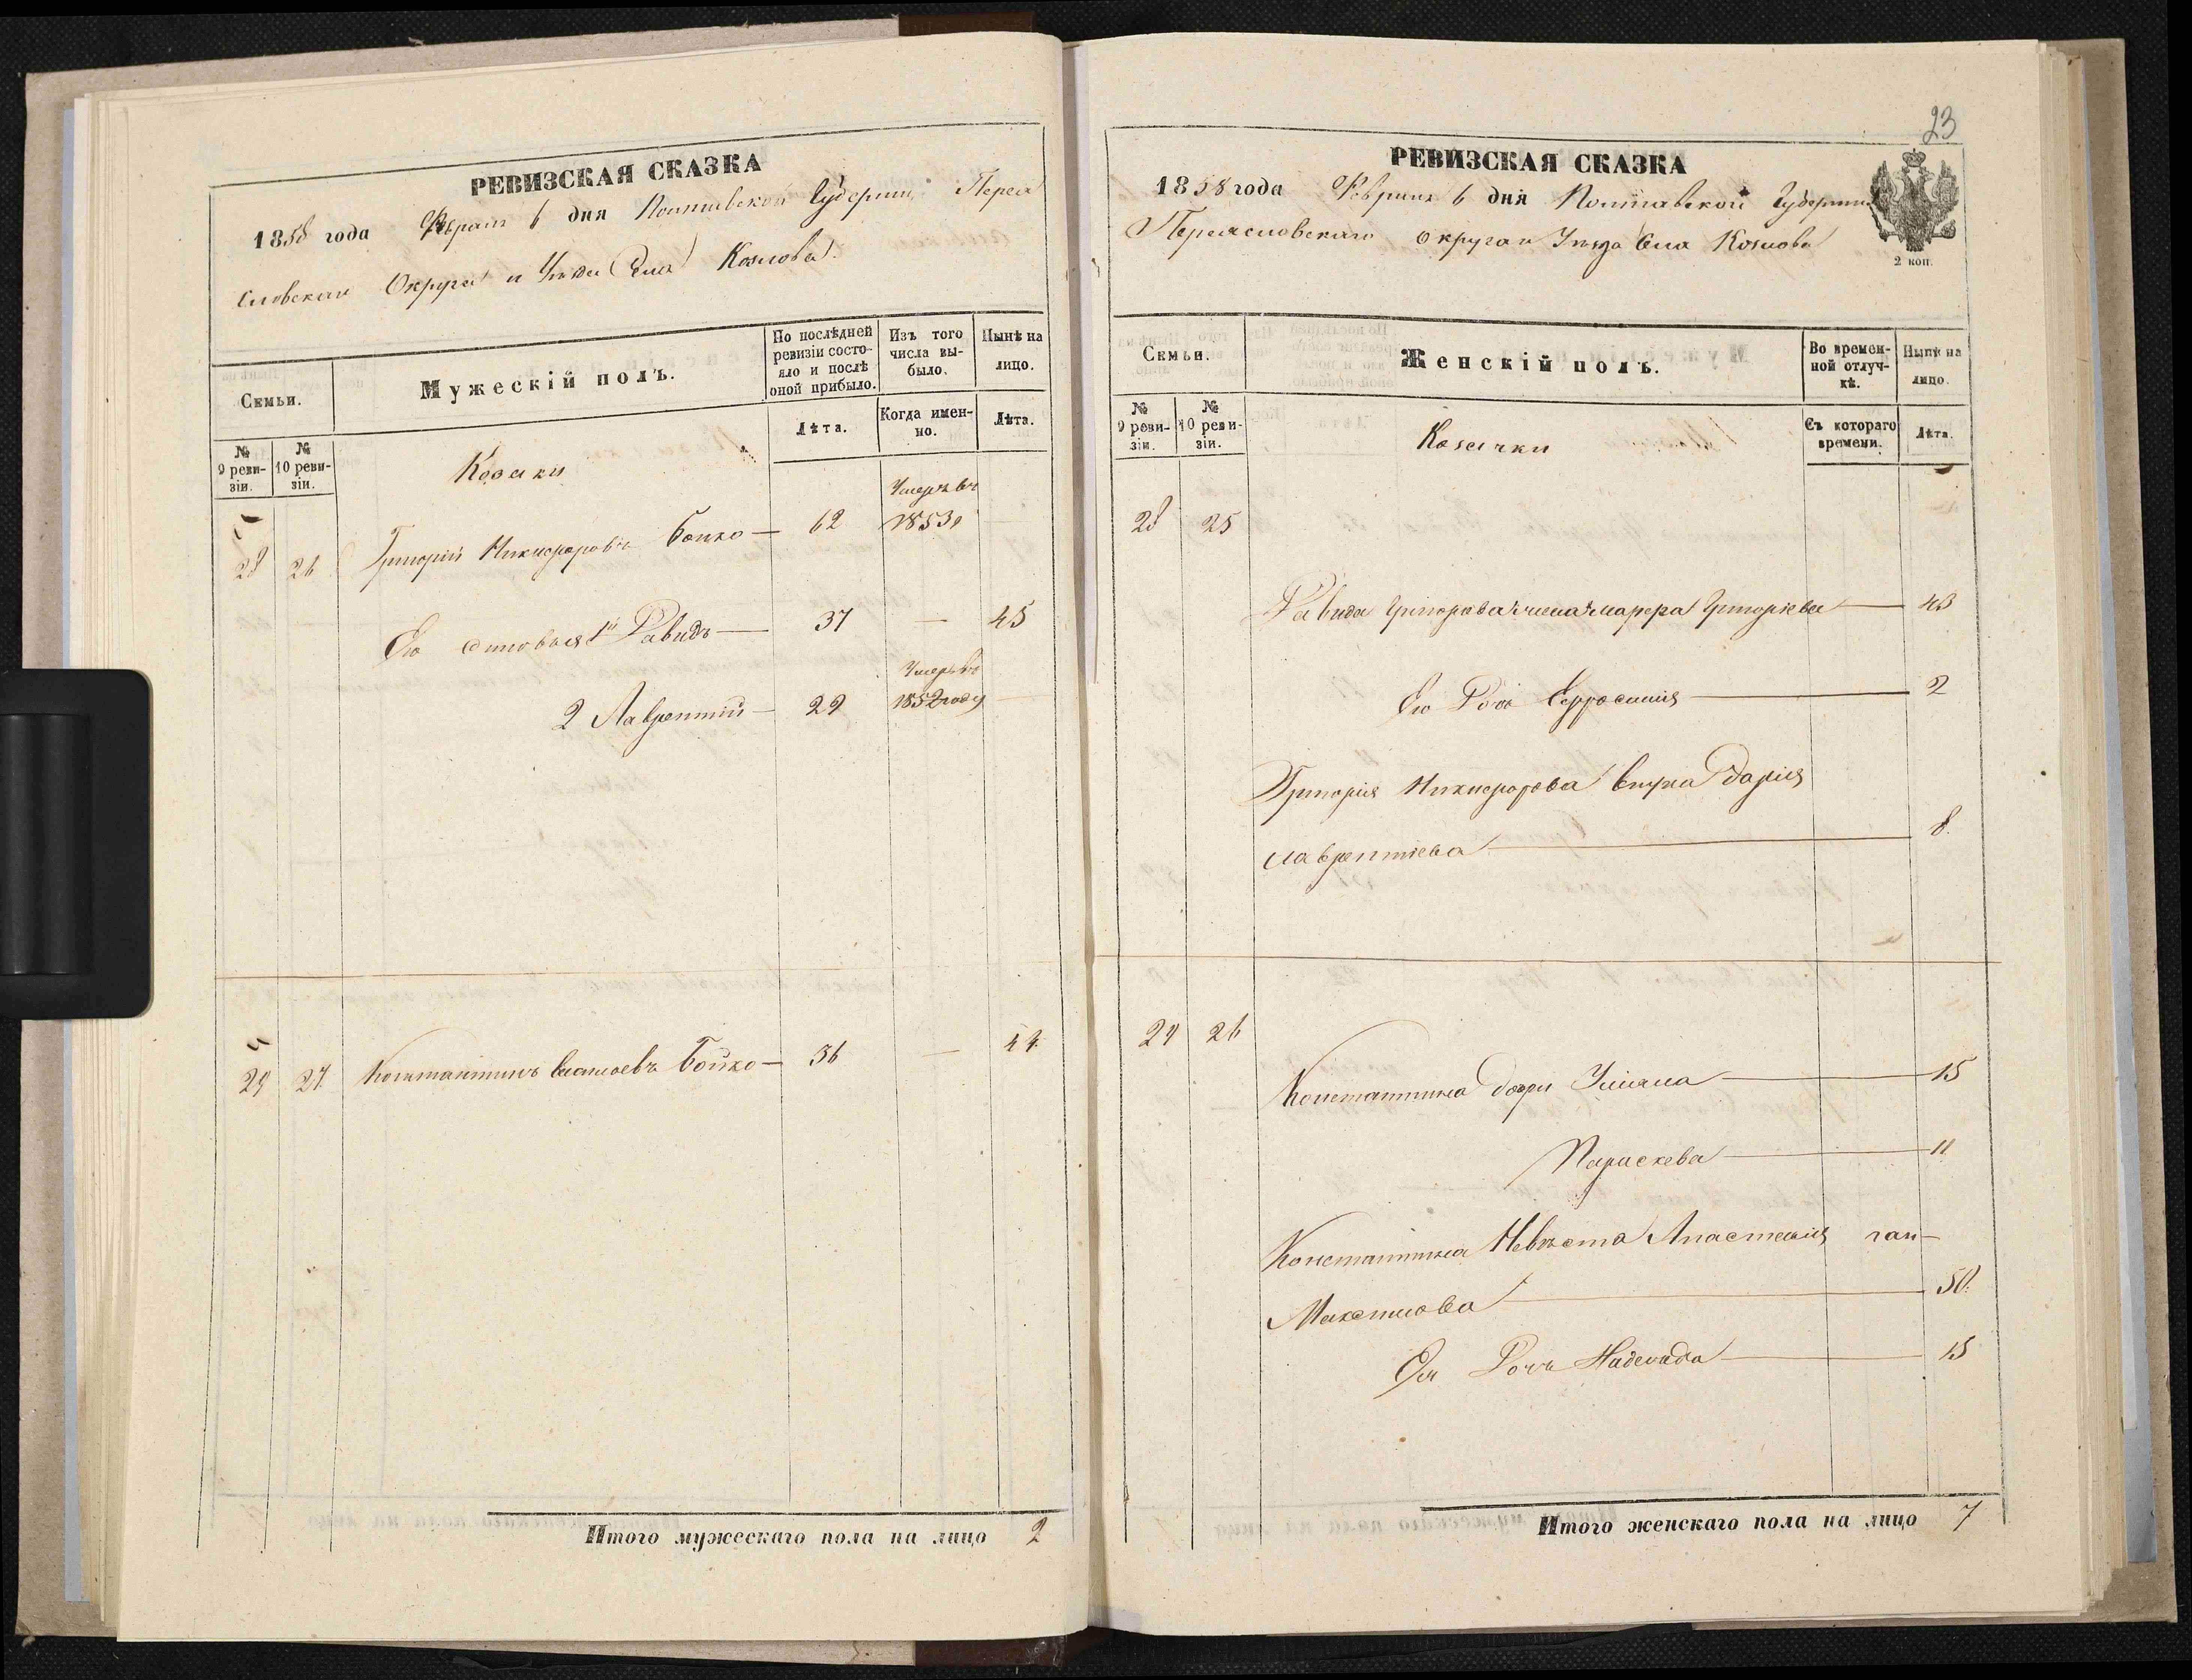 РЕВИЗСКАЯ СКАЗКА
1858 года Февраля 6 дня Полтавской Губернии Перея
словскаго Округа и Уѣзда Села Козлова
Семьи.
Мужескій полъ.
По послѣдней ревизіи состояло и послѣ оной прибыло.
Изъ того числа выбыло.
Нынѣ на лицо.
№ 9 ревизіи.
№ 10 ревизіи.
Лѣта.
Когда именно.
Лѣта.
Козаки
Умеръ въ
28 26 Григорій Никифоровъ Бойко — 62 1853г
Его сыновья 1й Давидъ — 37 — 45
Умеръ въ
2 Лаврентій — 29 1852 году
29 27 Константинъ Бойко — 36 — 44
Итого мужескаго пола на лицо 2
23
РЕВИЗСКАЯ СКАЗКА
1858 года Февраля 6 дня Полтавской Губерніи
Переясловскаго округа и Уѣзда Села Козлова
2 коп.
Семьи.
Женскій полъ.
Во временной отлучкѣ.
Нынѣ на лицо.
№ 9 ревизіи.
№ 10 ревизіи.
Съ котораго времени.
Лѣта.
Козачки
28 25
Давида Григорова жена Марфа Григорьева — 43
Его Дочь Ефросинія — 2
Григорія Никифорова внука Дарія
Лаврентіева — 8.
29 26
Константина дочери Уліяна — 15
Параскева — 11
Константина Невѣста Анастасія
Максимова — 50.
Ея Дочь Надежда — 15
Итого женскаго пола на лицо 7